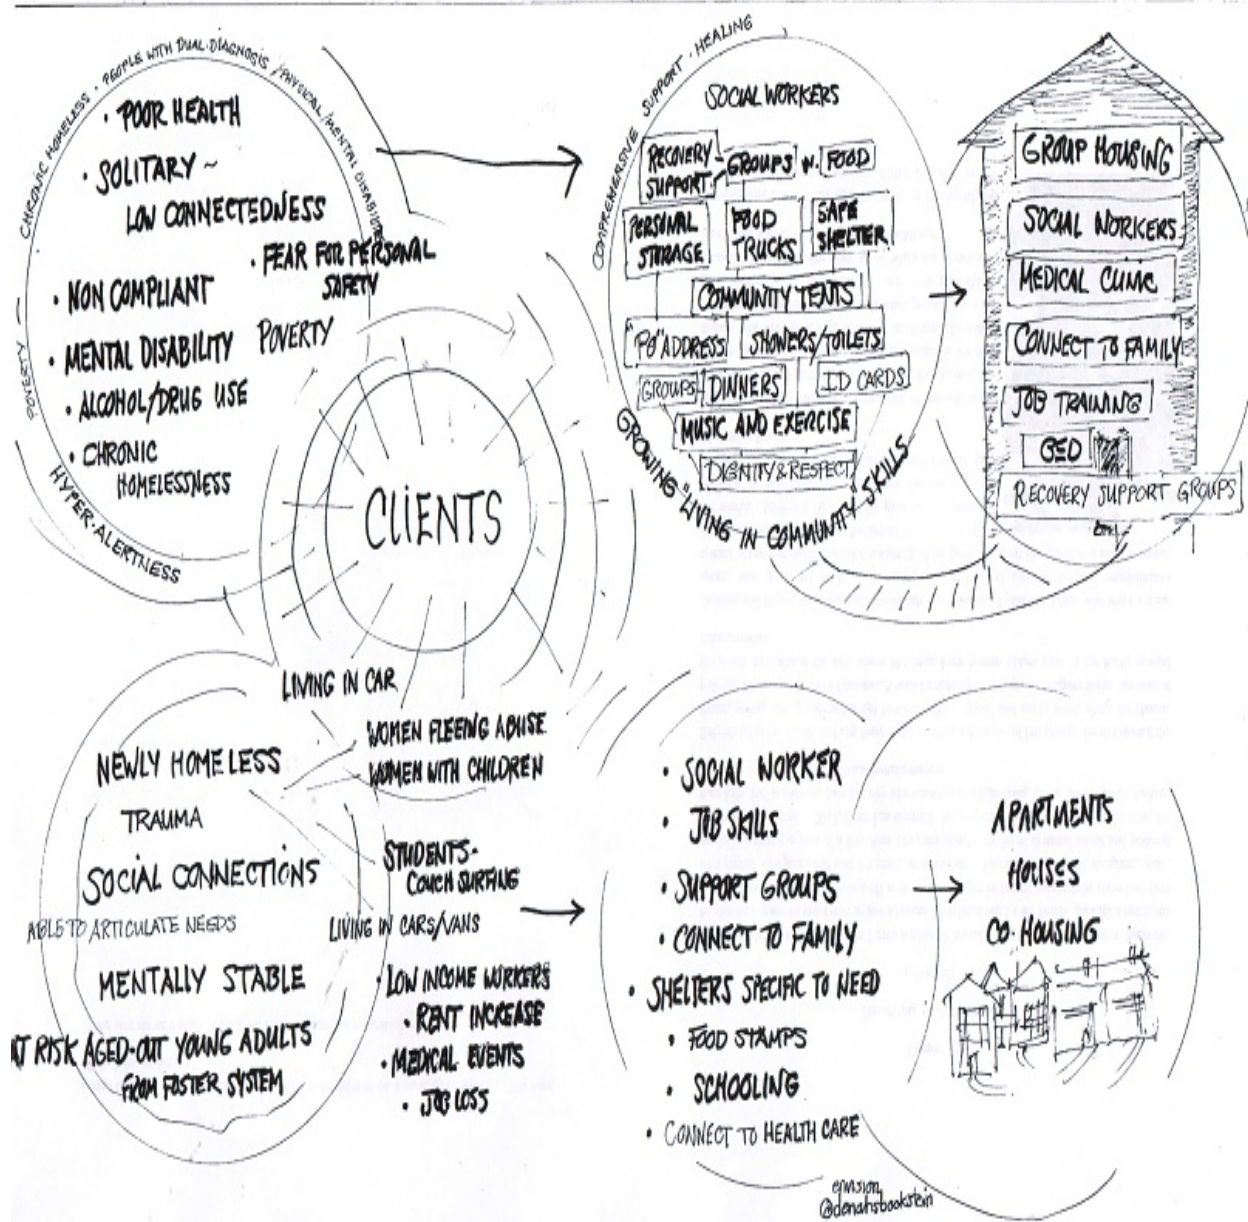 CHRONIC HOMELESS · PEOPLE WITH DUAL·DIAGNOSIS / PHYSICAL/MENTAL DISABILITIES
POVERTY —
HYPER·ALERTNESS
· POOR HEALTH
· SOLITARY ~
LOW CONNECTEDNESS
· FEAR FOR PERSONAL
SAFETY
· NON COMPLIANT
POVERTY
· MENTAL DISABILITY
· ALCOHOL/DRUG USE
· CHRONIC
HOMELESSNESS
CLIENTS
COMPREHENSIVE SUPPORT · HEALING
SOCIAL WORKERS
RECOVERY
SUPPORT
GROUPS W. FOOD
PERSONAL
STORAGE
FOOD
TRUCKS
SAFE
SHELTER
COMMUNITY TENTS
"PO" ADDRESS
SHOWERS/TOILETS
GROUPS
DINNERS
ID CARDS
MUSIC AND EXERCISE
DIGNITY & RESPECT
GROWING "LIVING IN COMMUNITY" SKILLS
GROUP HOUSING
SOCIAL WORKERS
MEDICAL CLINIC
CONNECT TO FAMILY
JOB TRAINING
GED
RECOVERY SUPPORT GROUPS
LIVING IN CAR
WOMEN FLEEING ABUSE
WOMEN WITH CHILDREN
NEWLY HOMELESS
TRAUMA
SOCIAL CONNECTIONS
ABLE TO ARTICULATE NEEDS
MENTALLY STABLE
AT RISK AGED-OUT YOUNG ADULTS
FROM FOSTER SYSTEM
STUDENTS-
COUCH SURFING
LIVING IN CARS/VANS
· LOW INCOME WORKERS
· RENT INCREASE
· MEDICAL EVENTS
· JOB LOSS
· SOCIAL WORKER
· JOB SKILLS
· SUPPORT GROUPS
· CONNECT TO FAMILY
· SHELTERS SPECIFIC TO NEED
· FOOD STAMPS
· SCHOOLING
· CONNECT TO HEALTH CARE
APARTMENTS
HOUSES
CO·HOUSING
envision
@denahsbookstein